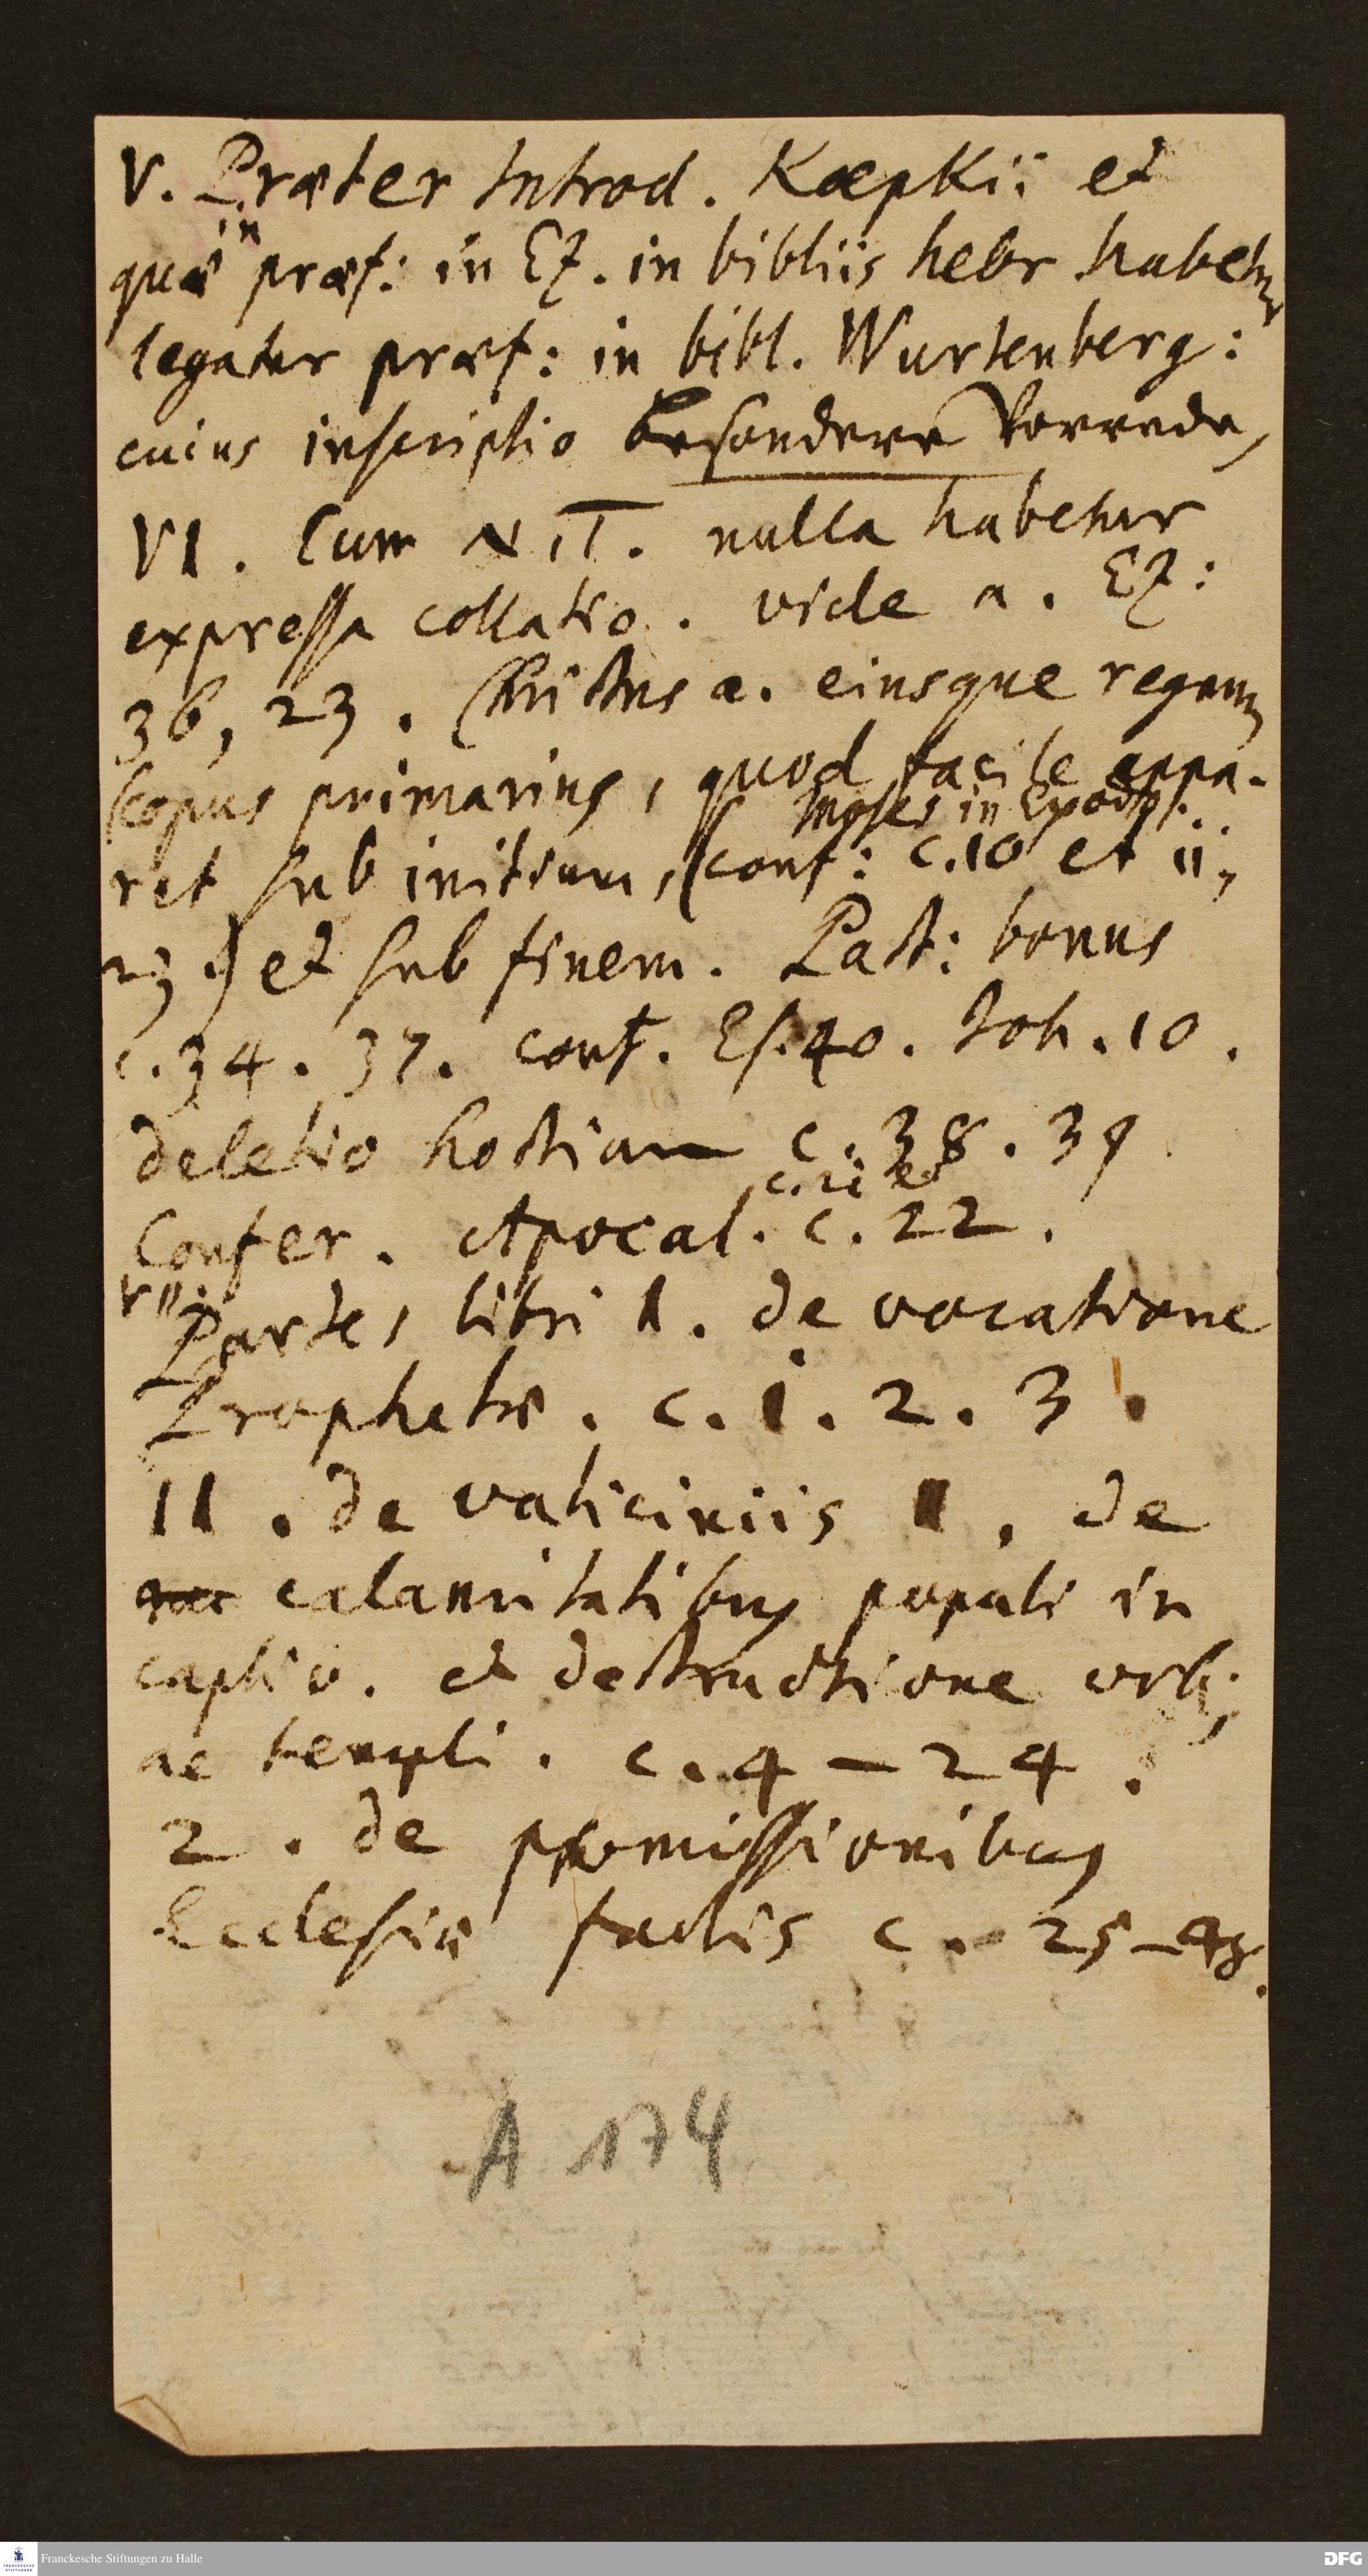 V. Præter Introd. Kœpkii et
quæ in præf: in Ez. in bibliis hebr habetur
legatur præf: in bibl. Wurtenberg:
cuius inscriptio besondere Vorrede,
VI. Cum N.T. nulla habetur
expressa collatio. vide a. Ez:
36, 23. Christus a. eiusque regnum
scopus primarius, quod facile appa-
ret sub initium, (conf: Moses in Exodo c.10 et 11,
23.) et sub finem. Past: bonus
c.34. 37. conf. Es.40. Joh.10.
deletio hostium c.38.39
Confer. Apocal. c.21 et c.22.
VII. Partes libri I. de vocatione
Prophetæ. c.1.2.3.
II. de vaticiniis 1. de
calamitatibus populi in
captiv. et destructione urbis
ac templi. c.4-24.
2. de promissionibus
Ecclesiæ factis c. 25-48.
A 174
Franckesche Stiftungen zu Halle
DFG